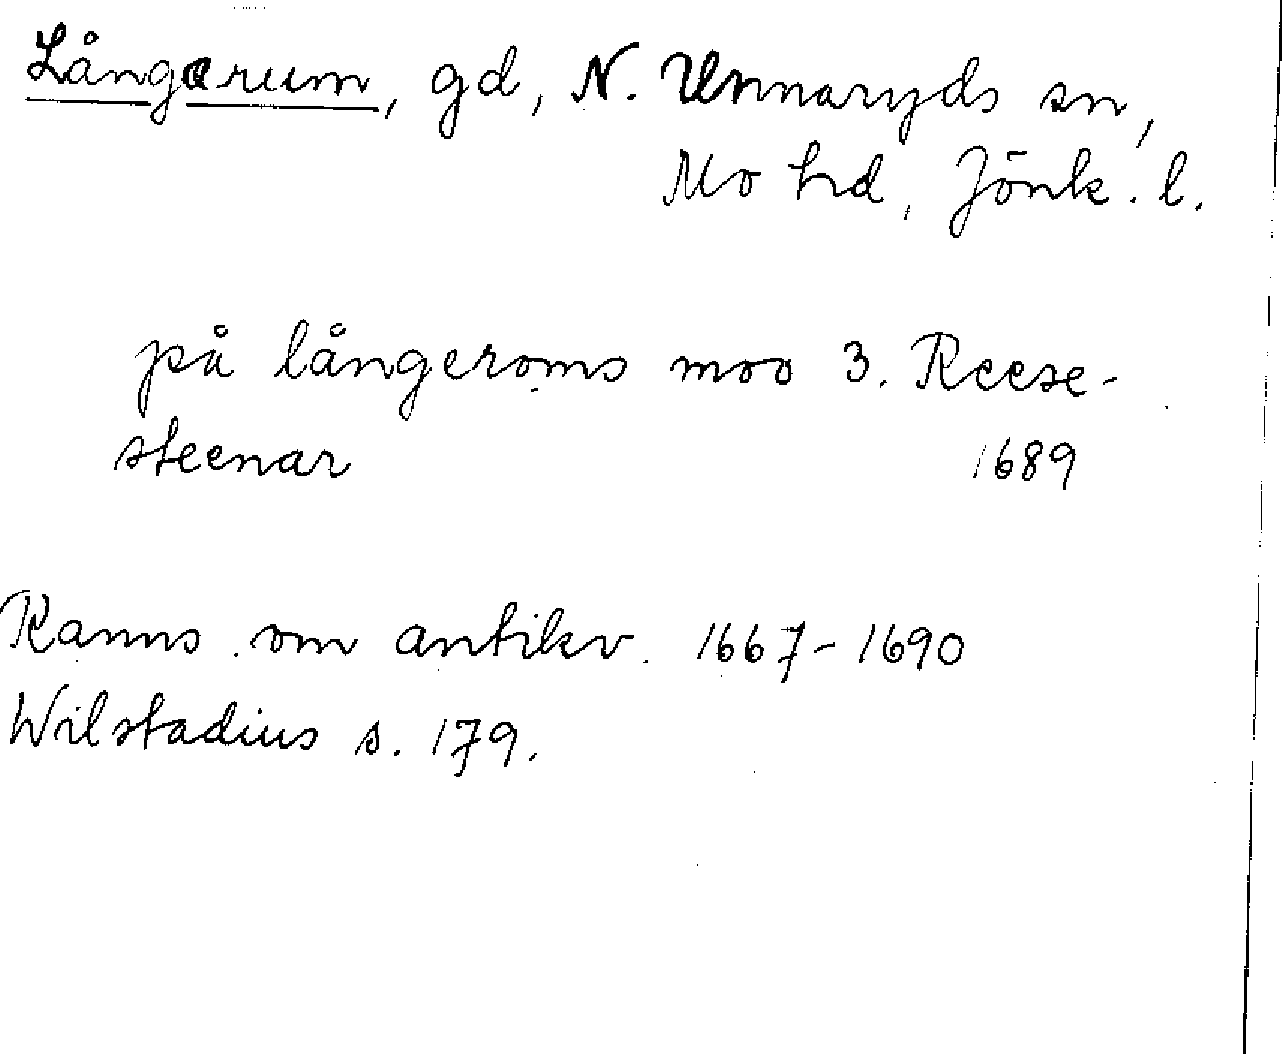 Långarum, gd, N. Unnaryds sn,
Mo hd, Jönk. l.
på långeroms moo 3. Reese-
steenar 1689
Ranns. om antikv. 1667-1690
Wilstadius s. 179.